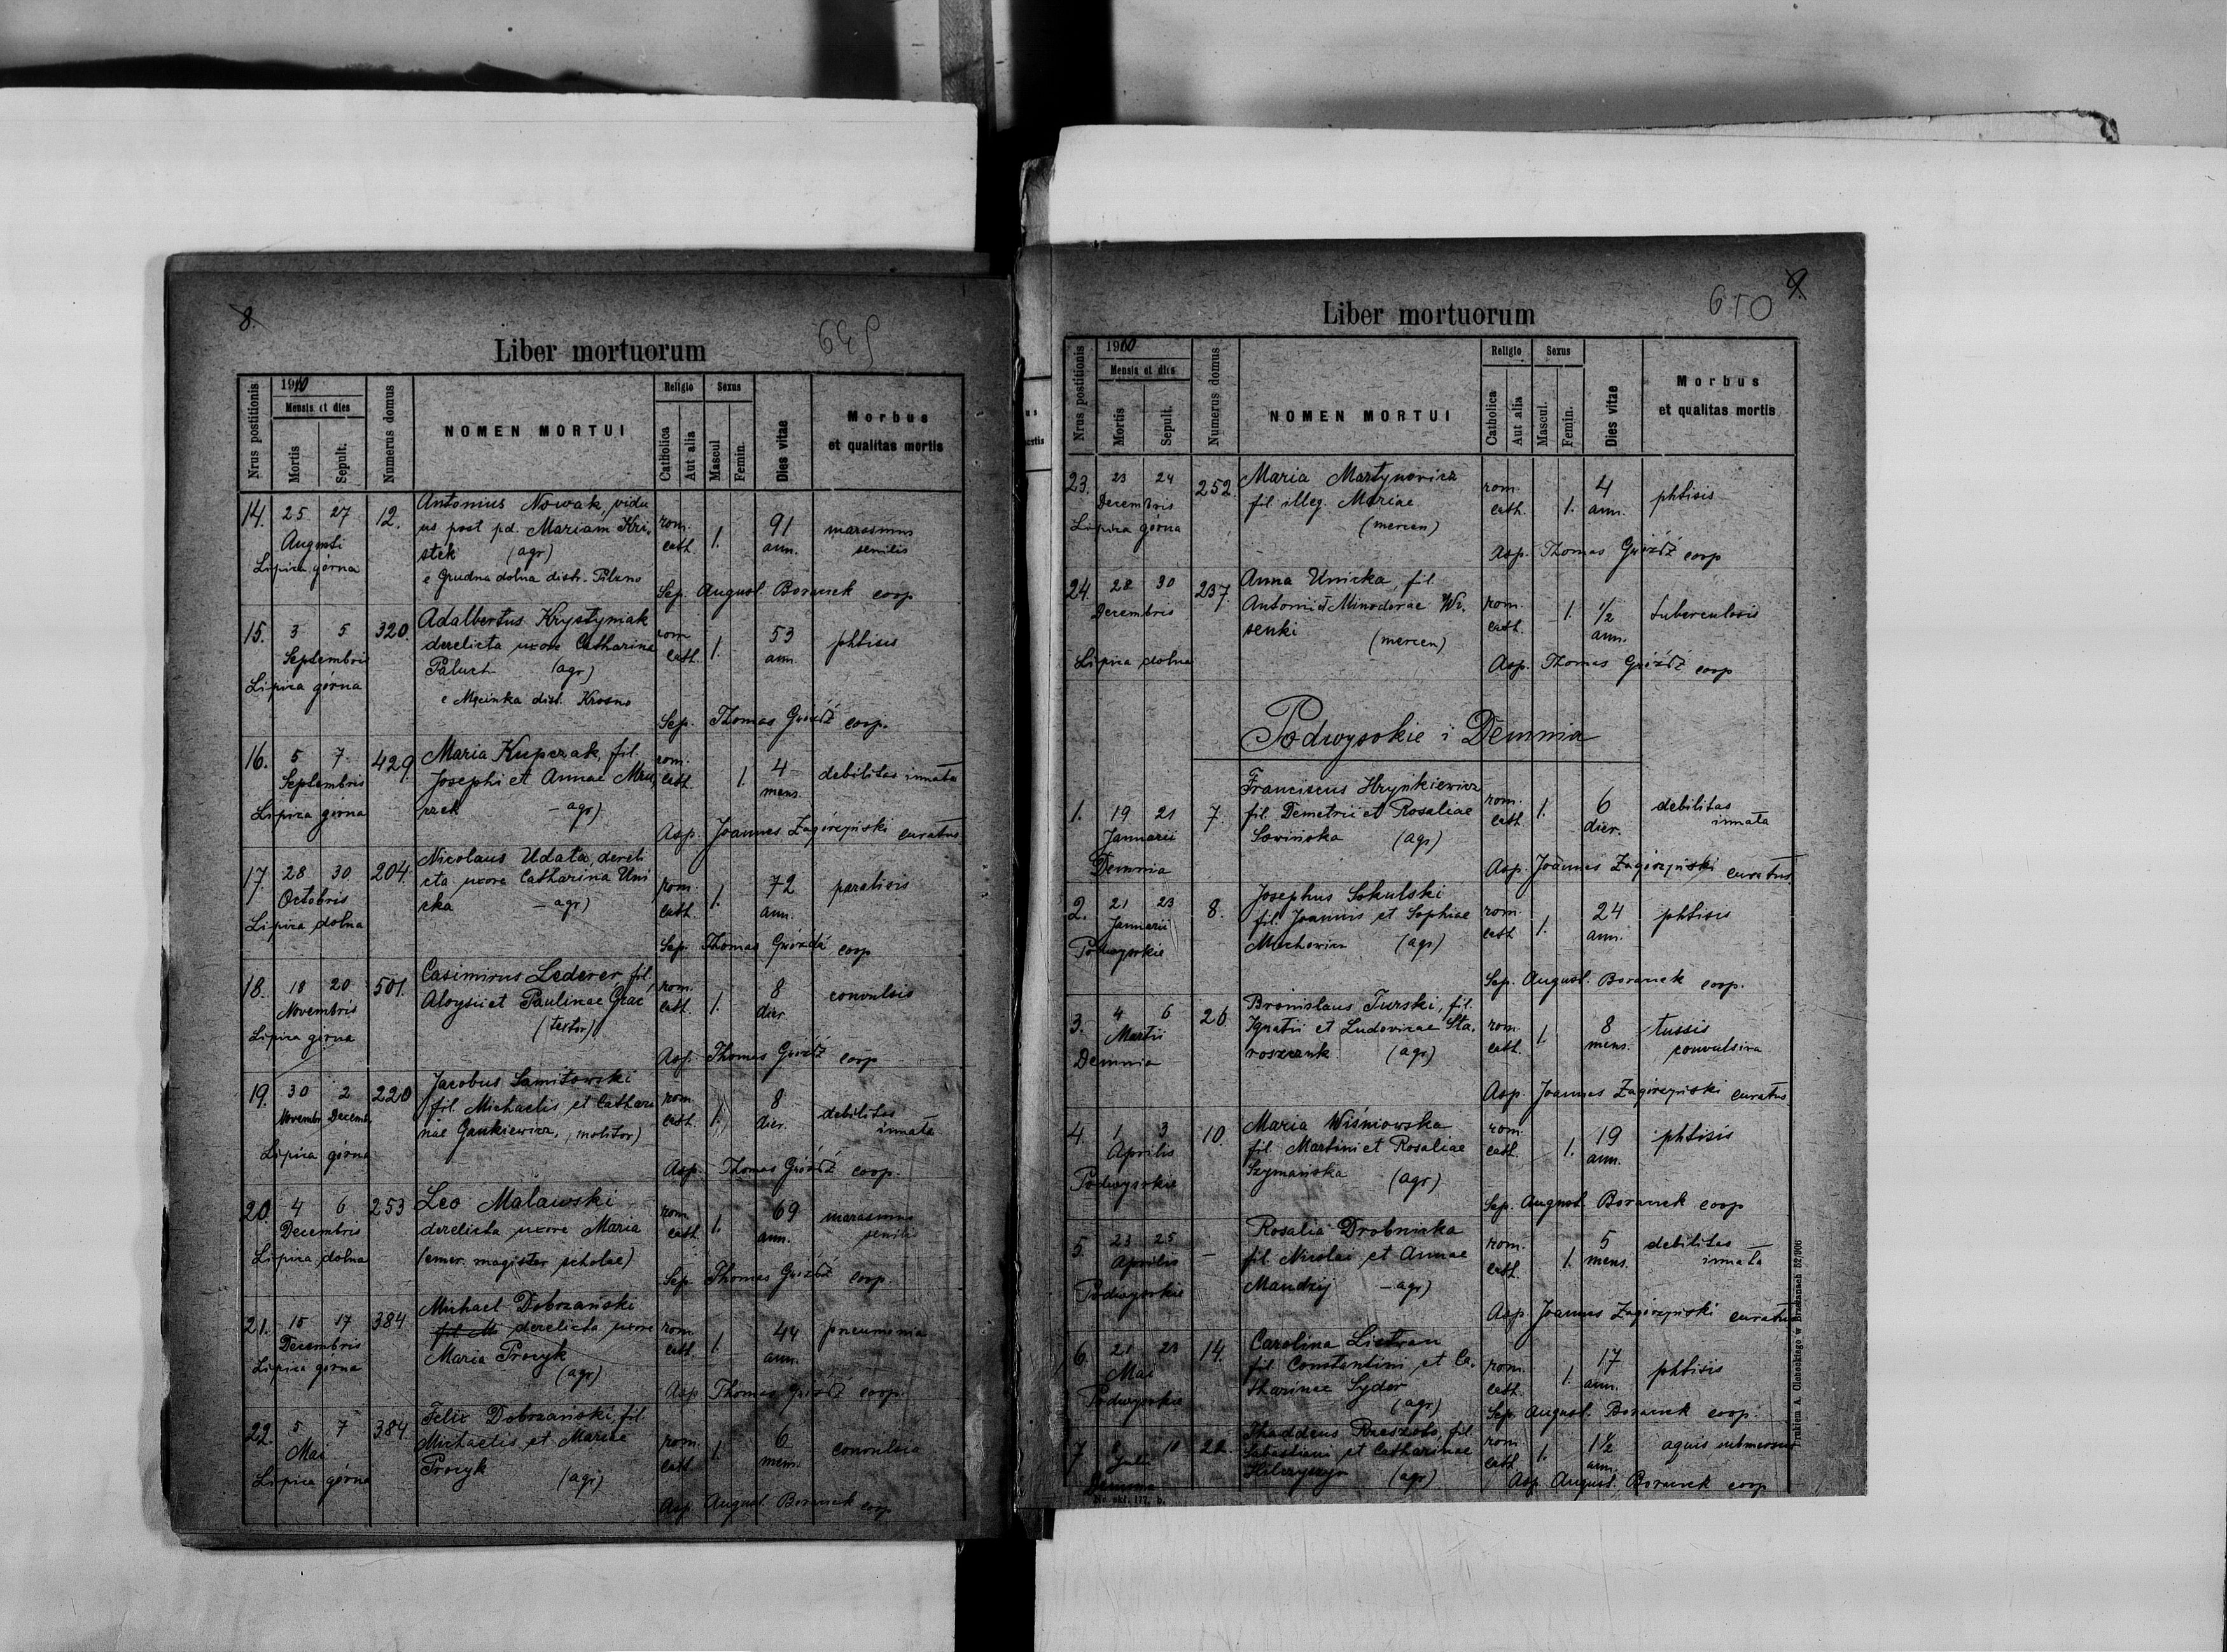 8.
649
Liber mortuorum
Nrus postitionis
1910
Mensis et dies
Mortis
Sepult.
Numerus domus
NOMEN MORTUI
Religio
Catholica
Aut alia
Sexus
Mascul
Femin.
Dies vitae
Morbus
et qualitas mortis
14. 25 27 12. Antonius Nowak, vidu
us post pd. Mariam Kri- rom. 1. 91 marasmus
Augusti stek (agr) cath ann. senilis
Lipica górna e Grudna dolna distr. Pilzno
Sep. August. Boranek coop
15. 3 5 320. Adalbertus Krystyniak
Septembris derelicta uxore Catharina rom. cath. 1. 53 ann. phtisis
Lipica górna Paluch (agr)
e Męcinka distr. Krosno
Sep. Thomas Gwóźdź coop.
16. 5 7 429. Maria Kupczak, fil. rom.
Septembris Josephi et Annae cath. 1. 4 mens. debilitas innata
Lipica górna agr)
Asp. Joannes Zagórzyński curatus
17. 28 30 204. Nicolaus Udata, dereli
Octobris cta uxore Catharina Uni rom. 1. 72 paralisis
Lipica dolna cka agr) cath ann.
Sep. Thomas Gwóźdź coop
18. 18 20 501. Casimirus Lederer, fil. rom.
Novembris Aloysii et Paulinae cath. 1. 8 dier. convulsis
Lipica górna (textor)
Asp. Thomas Gwóźdź coop
19. 30 2 220 Jacobus
Novembr Decemb fil. Michaelis et Cathari rom. cath. 1. 8 dier. debilitas
Lipica górna nae Gankiewicz, molitor) innata
Asp. Thomas Gwóźdź coop.
20. 4 6 253 Leo Malawski
Decembris derelicta uxore Maria rom. cath 1. 69 ann. marasmus
Lipica dolna (emer. magister scholae) senilis
Sep. Thomas Gwóźdź coop.
21. 15 17 384 Michael Dobrzański
Decembris fil. M derelicta uxore rom. cath. 1. 44 ann. pneumonia
Lipica górna Maria Procyk
(agr)
Asp Thomas Gwóźdź coop.
22. 5 7 384. Felix Dobrzański, fil.
Mai Michaelis et Mariae rom. cath. 1. 6 mens. convulsia
Lipica górna Procyk (agr)
Asp. August. Boranek coop
9.
650
Liber mortuorum
Nrus postitionis
1910
Mensis et dies
Mortis
Sepult.
Numerus domus
NOMEN MORTUI
Religio
Catholica
Aut alia
Sexus
Mascul.
Femin.
Dies vitae
Morbus
et qualitas mortis
23. 23 24 252. Maria Martynowicz rom. 4 phtisis
Decembris fil illeg. Mariae cath. 1. ann.
Lipica górna (mercen)
Asp. Thomas Gwóźdź coop
24. 28 30 237. Anna Unicka, fil.
Decembris Antonii et Minodorae Wi- rom. 1. 1/2 tuberculosis
senki (mercen) cath. ann.
Lipica dolna
Asp. Thomas Gwóźdź coop
Podwysokie i Demnia
Franciscus Hrynkiewicz
1. 19 21 7. fil. Demetrii et Rosaliae rom. cath 1. 6 dier. debilitas
Januarii Sawińska (agr) innata
Demnia
Asp. Joannes Zagórzyński curatus.
2. 21 23 8. Josephus Sokulski
Januarii fil. Joannis et Sophiae rom. cath 1. 24 ann. phtisis
Podwysokie Mochowicz (agr)
Sep. August. Boranek coop.
3. 4 6 26 Bronislaus Turski, fil.
Martii Ignatii et Ludovicae Sta- rom. cath. 1. 8 mens. tussis
Demnia roszczuk (agr) convulsiva
Asp. Joannes Zagórzyński curatus.
4. 1 3 10. Maria Wiśniowska
Aprilis fil. Martini et Rosaliae rom. cath. 1. 19 ann. phtisis
Podwysokie Szymańska (agr)
Sep. August. Boranek coop
5. 23 25 — Rosalia Drobnicka
Aprilis fil. Nicolai et Annae rom. cath. 1. 5 mens. debilitas
Podwysokie Mandzij agr) innata
Asp. Joannes Zagórzyński curatus
6. 21 23 14. Carolina Lietwan
Mai fil. Constantini et Ca- rom. cath. 1. 17 ann. phtisis
Podwysokie tharinae Sydor
(agr)
Sep. August. Boranek coop.
7 10 Thaddeus fil.
Julii Sebastiani et Catharinae rom. cath. 1. 1 1/2 ann. aquis submersus
Demnia (agr) Asp. August. Boranek coop
Nr. skł. 177. b.
Drukiem A. Clebockiego w Brzeżanach 52/906